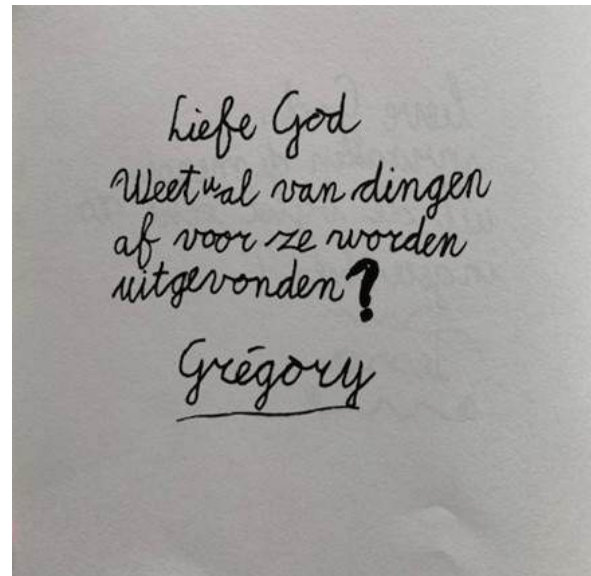 Liefe God
Weet u al van dingen
af voor ze worden
uitgevonden?
Grégory